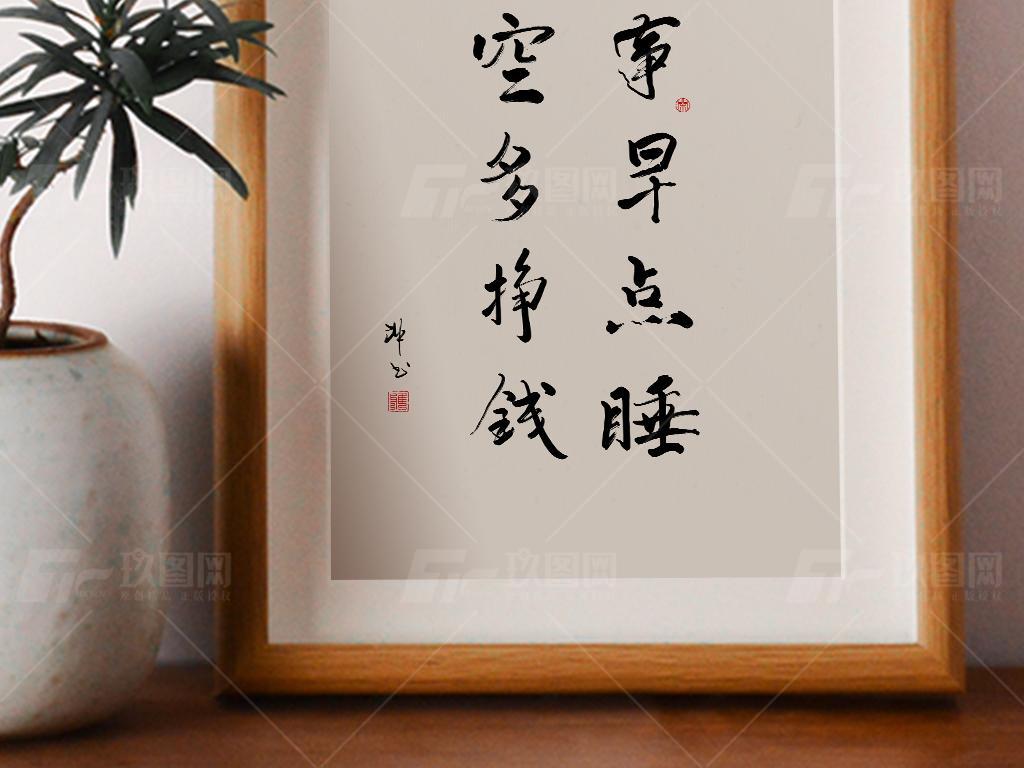 事早点睡
空多挣钱
玖图网
玖图网
玖图网
玖图网
玖图网